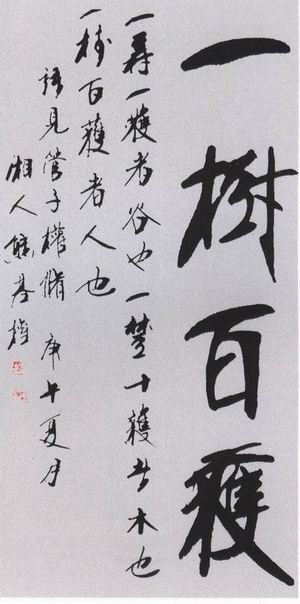 一樹百穫
一樹一穫者谷也一樹十穫者木也
一樹百穫者人也
語見管子權脩 庚午夏月
湘人熊基